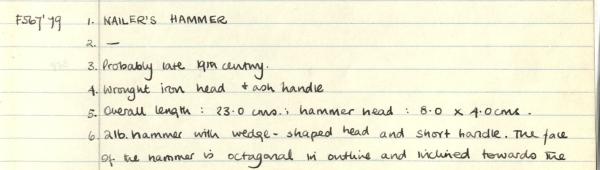 F567'79 1. NAILER'S HAMMER
2. —
3. Probably late 19th century.
4. Wrought iron head + ash handle
5. Overall length : 23.0 cms.; hammer head : 8.0 x 4.0 cms.
6. 2lb. hammer with wedge-shaped head and short handle. The face
of the hammer is octagonal in outline and inclined towards the